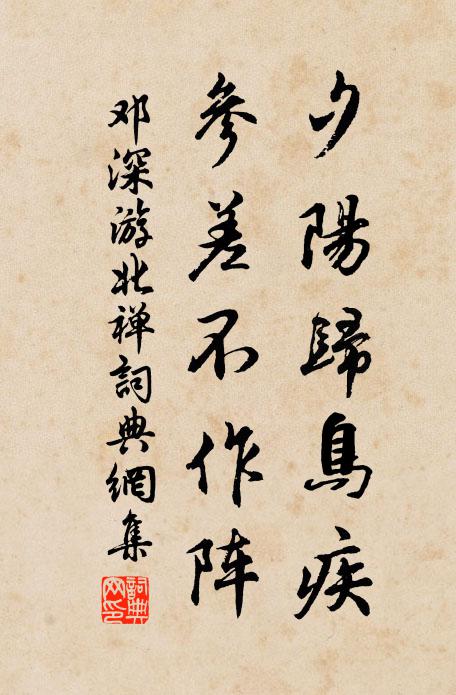 夕陽歸鳥疾
參差不作阵
邓深游北禅詞典網集
詞典